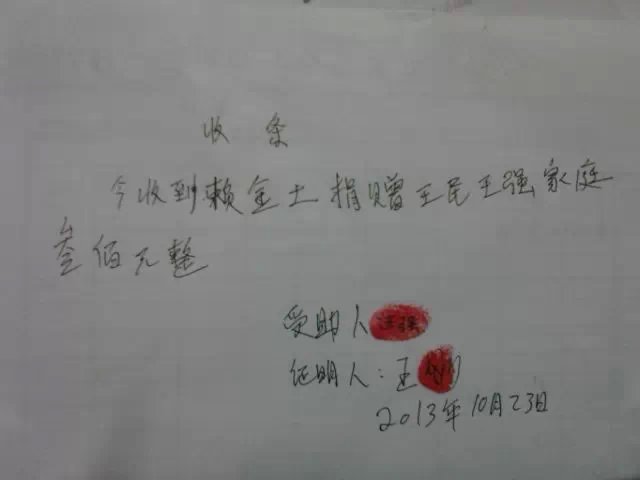 收条
今收到赖金土捐赠王民王强家庭
叁佰元整
受助人
证明人：王
2013年10月23日